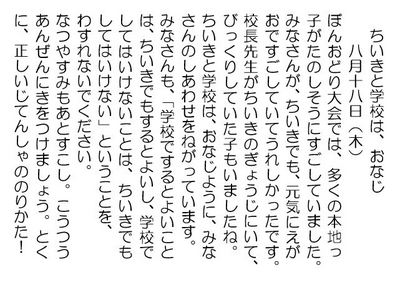 ちいきと学校は、おなじ
八月十八日（木）
ぼんおどり大会では、多くの本地っ
子がたのしそうにすごしていました。
みなさんが、ちいきでも、元気にえが
おですごしていてうれしかったです。
校長先生がちいきのぎょうじにいて、
びっくりしていた子もいましたね。
ちいきと学校は、おなじように、みな
さんのしあわせをねがっています。
みなさんも、「学校でするとよいこと
は、ちいきでもするとよいし、学校で
してはいけないことは、ちいきでも
してはいけない」ということを、
わすれないでください。
なつやすみもあとすこし。こうつう
あんぜんにきをつけましょう。とく
に、正しいじてんしゃののりかた！